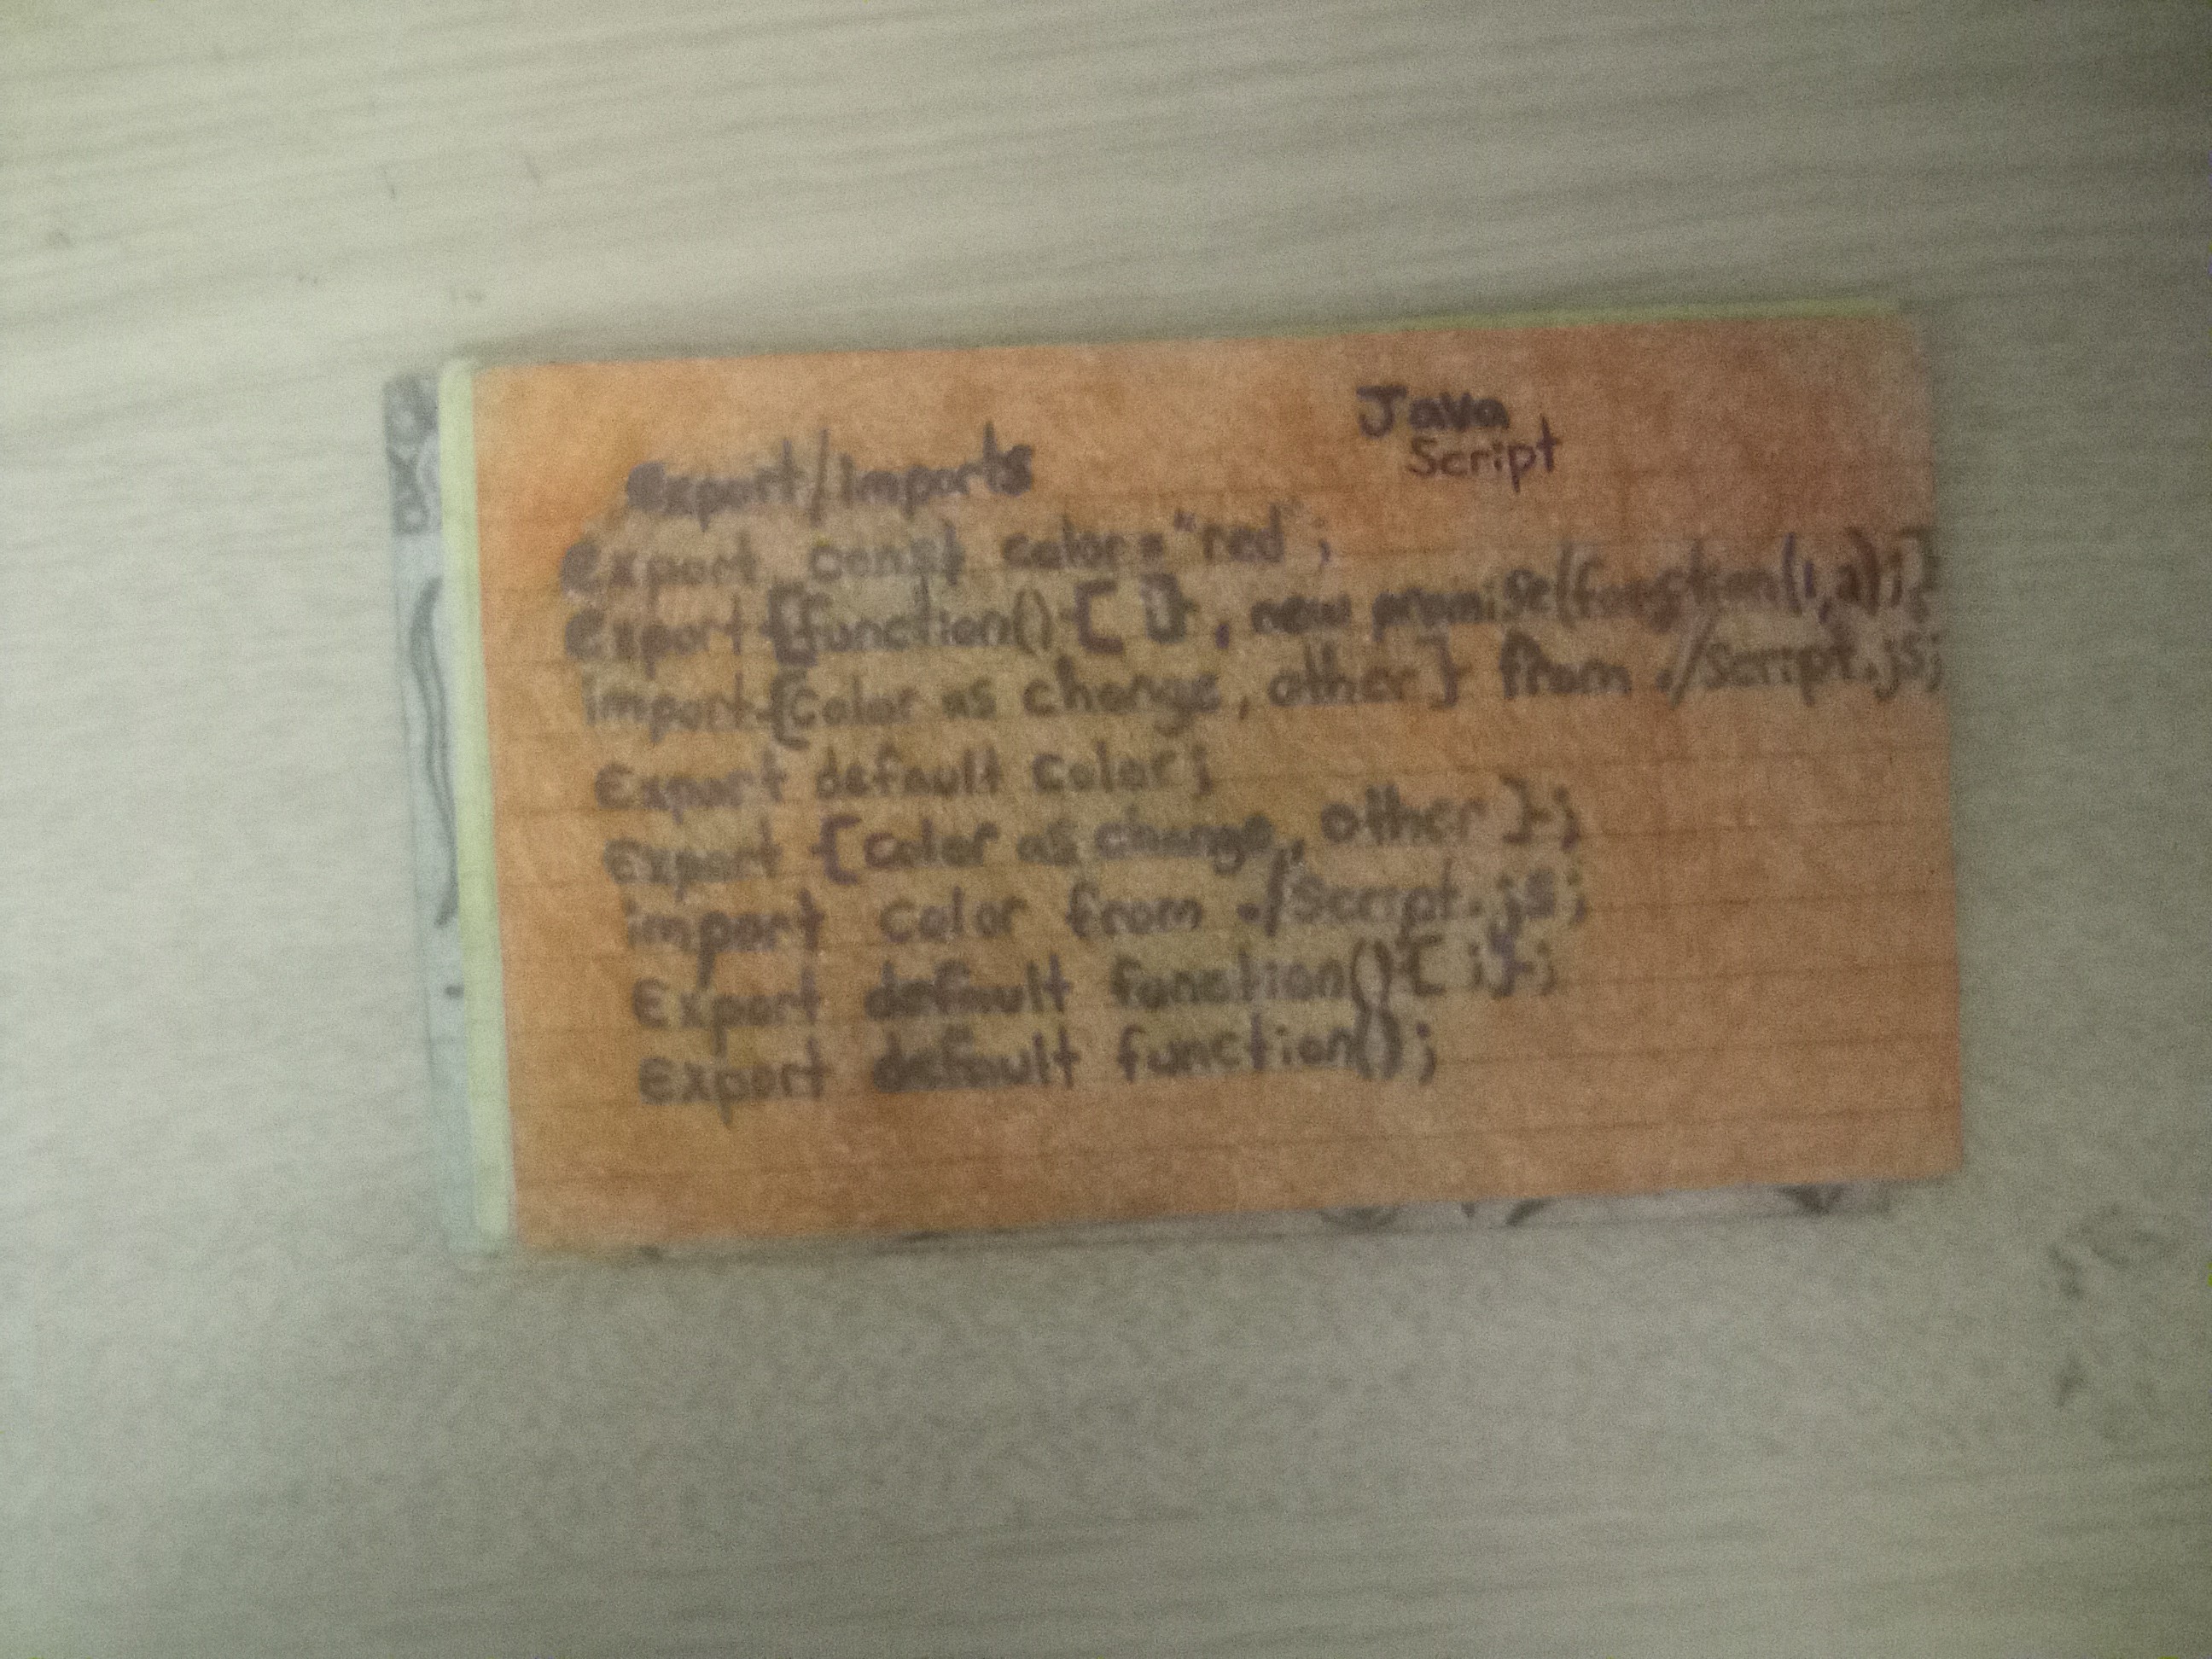 Java
Script
export/imports
export const color="red";
export {function(){ }}, new promise(function(1,a);}
import {color as change, other} from ./Script.js;
Export default color;
export {color as change, other};
import color from ./Script.js;
Export default function(){;};
Export default function();